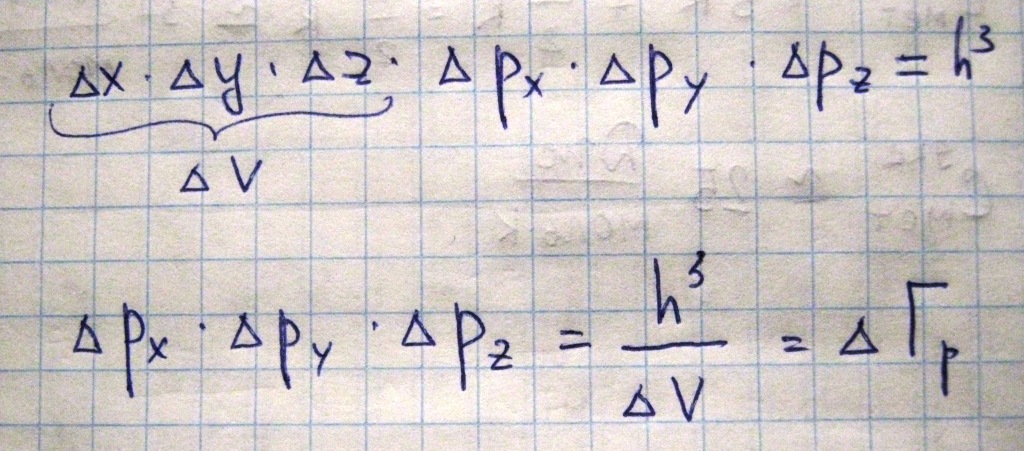 Δx · Δy · Δz · Δpx · Δpy · Δpz = h³
ΔV
Δpx · Δpy · Δpz = h³/ΔV = ΔΓp